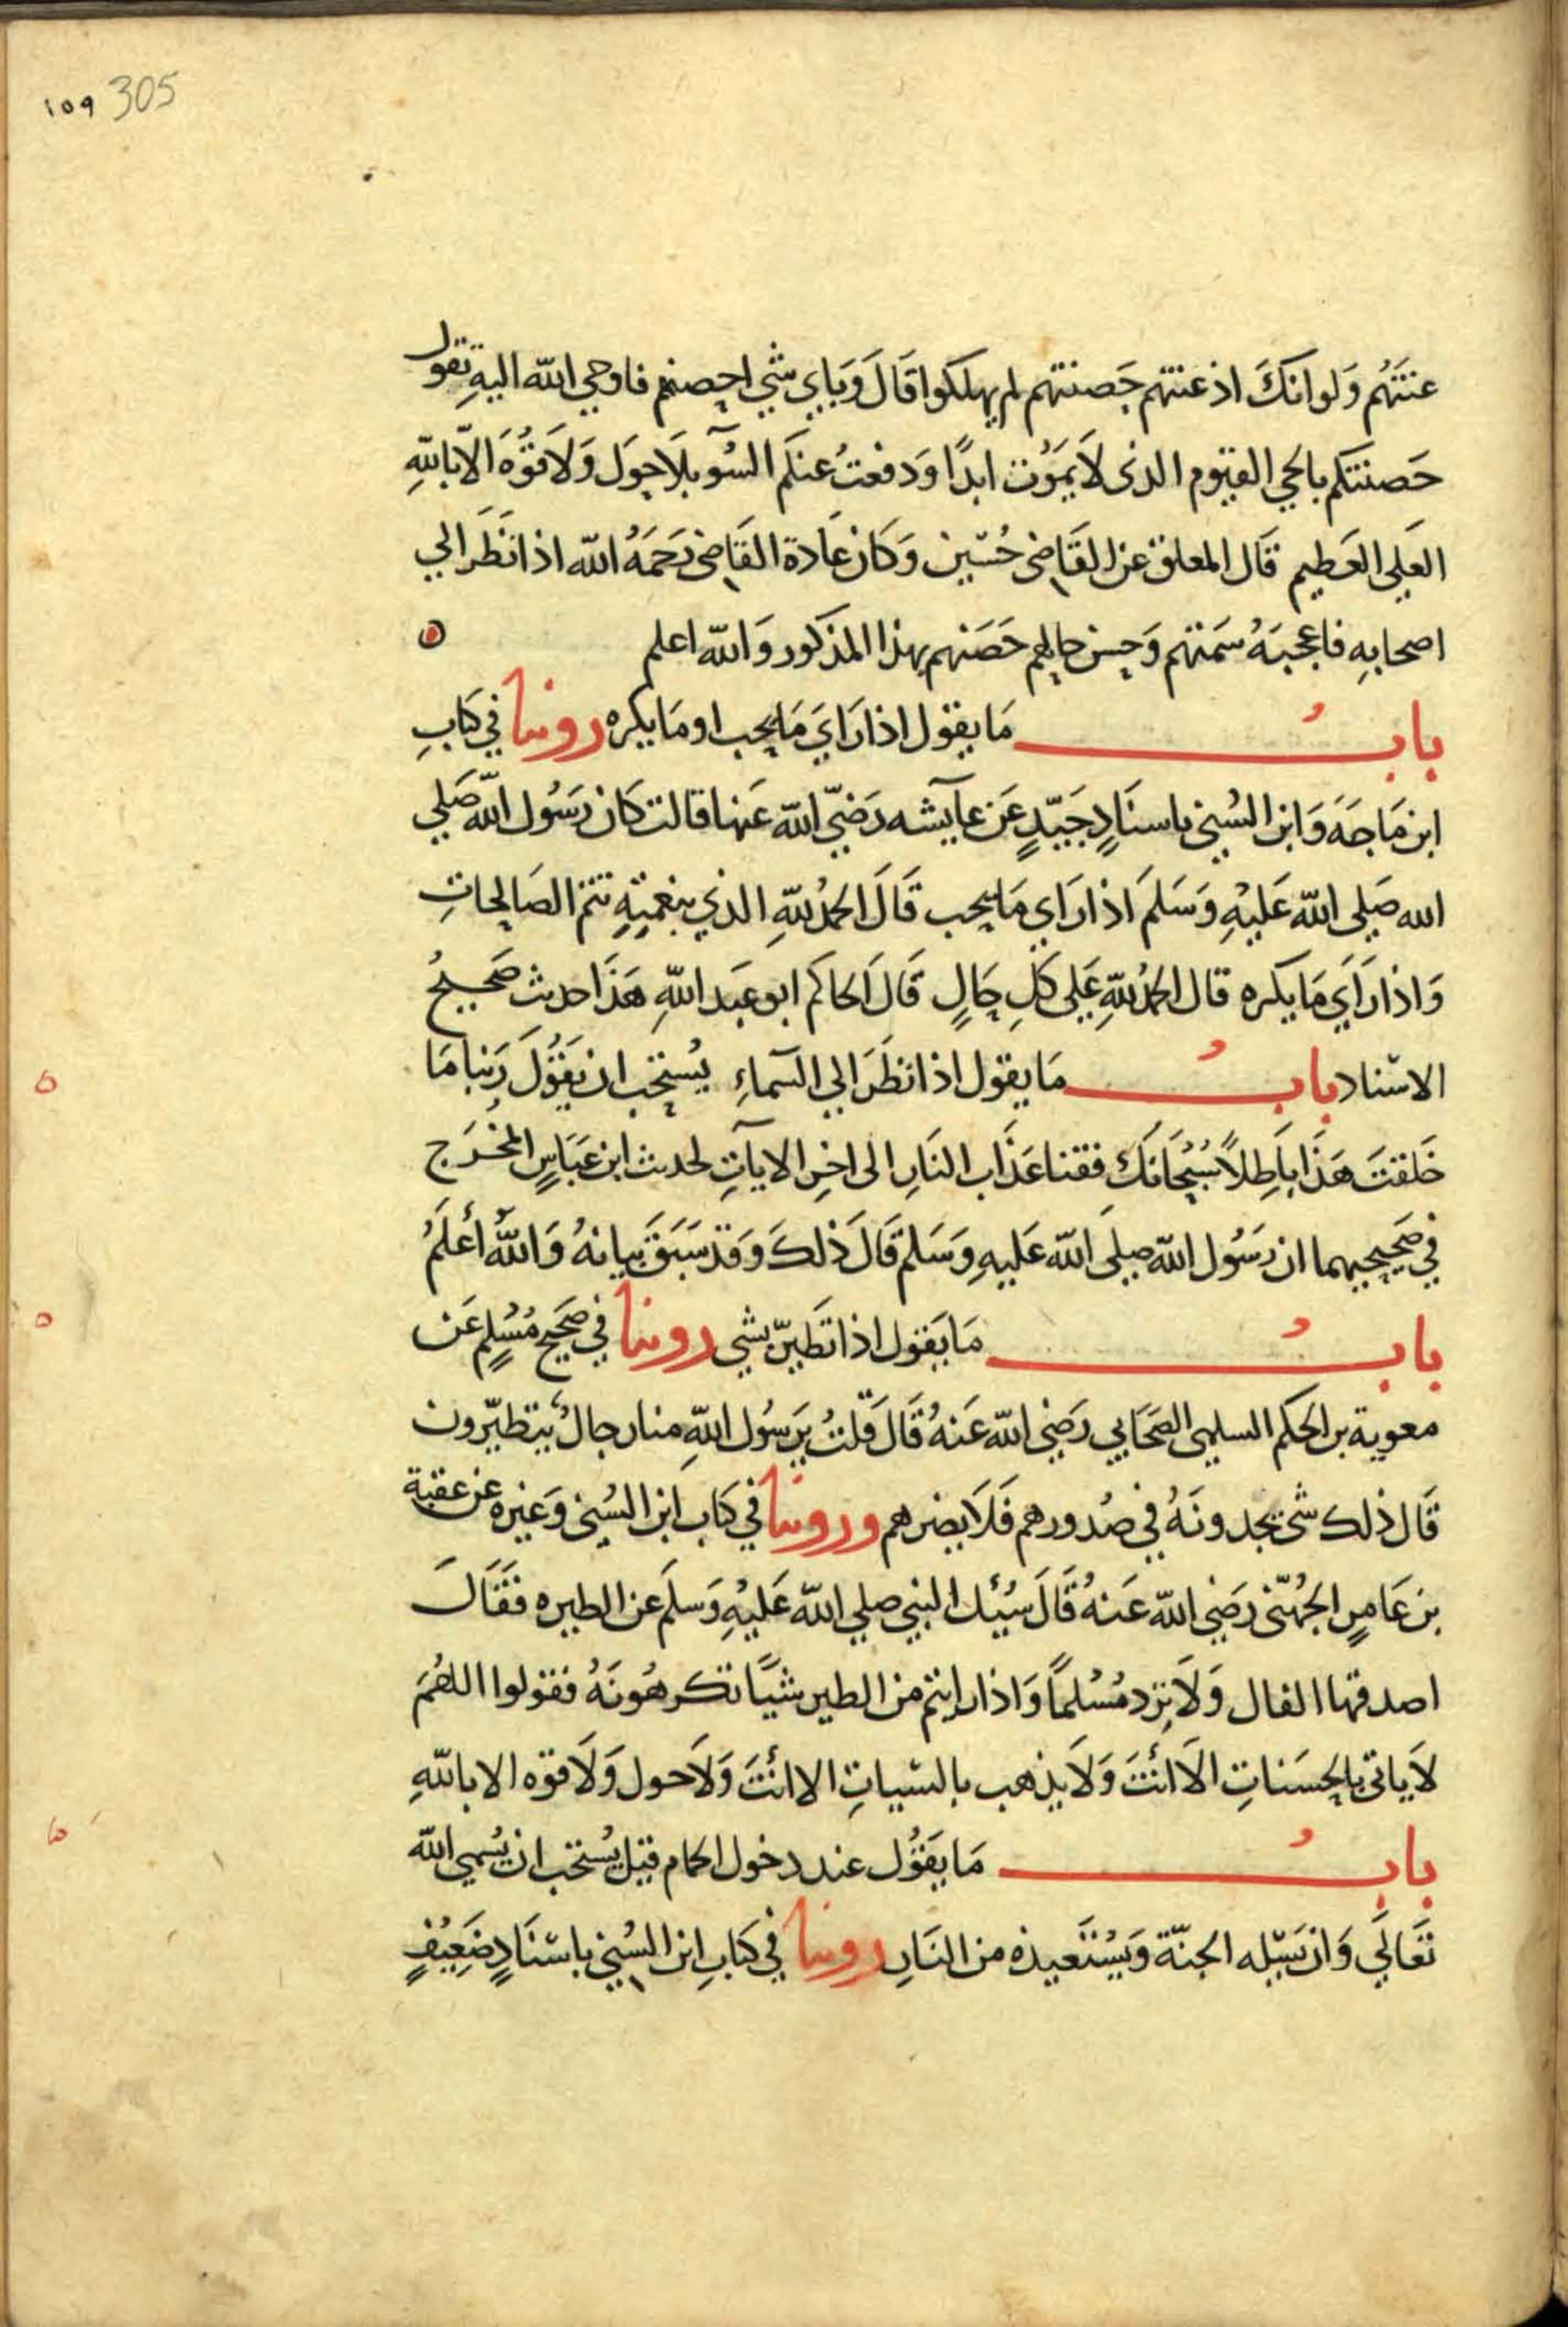 ١٥٩ 305
عنتهم وَلوانكَ اذ عنتهم حَصنتهم لم يهلكوا قَالَ وَباي شي احصنهم فاوحي الله اليهِ تقول
حَصنتكم بالحي القيوم الذى لاَ يمَوُت ابدًا وَدفعتُ عنكم السُوٓ بلاَحوَل وَلاَ قُوَّهَ الاّ باللهِ
العَلى العَظيم قَال المعلق عن القَاضى حُسَين وَكَان عَادة القَاضى رَحمَهُ الله اذا نَظَر الي
اصحابهِ فاعجبَهُ سَمتهم وَحسن حالهم حَصَنهم بهذا المذكور وَالله اعلم
بابُ مَا يقوَل اذا رَايَ مَا يحب او مَا يكره روينا في كَتابِ
ابن مَاجَهَ وَابن السُني باسنَادٍ جَيّدٍ عَن عآيشه رَضيّ الله عَنها قالت كَان رَسُول اللهِ صَلي
الله صَلى الله عَليْهِ وَسَلمَ اذا رَاي مَا يحب قَالَ الحمدُ للهِ الذي بنِعمتِهِ تتم الصَالحاتِ
وَاذا رَاَيَ مَا يكره قال الحمدُ للهِ عَلى كلِ حَالٍ قَالَ الحاكم ابو عَبَد اللهِ هَذَا حديث صَحيحُ
الاسناد بابُ مَا يقوَل اذا نظَرَ الي السَماءِ يُستحَب ان يَقُوُلَ رَبنا مَا
خَلقتَ هَذَا بَاطِلاً سُبْحَانَك فقنا عَذَاب النَارِ الى اخِر الايَاتِ لحديث ابن عَبَاسٍ المخُرَج
في صَحيحيهما ان رَسُول الله صَلى الله عَليهِ وَسَلم قَالَ ذلكَ وَقدَ سَبَقَ بيانهُ وَاللهُ أعْلَمُ
بابُ مَا يَقوَل اذا تَطَيرّ بشي روينا في صَحَيح مُسْلِمٍ عَن
معوية بن الحكم السلمي الصَحَابي رَضي الله عَنهُ قَالَ قلتُ يَرسُول اللهِ منا رجالُ يتطيّرون
قَال ذلك شى يجدونَهُ في صُدورهم فَلاَ يضرهم وروينا في كتَاب ابن السُني وَغيره عن عقبة
بن عَامرٍ الجُهنى رَضي الله عَنهُ قَالَ سُئِل النبي صلي الله عَليْهِ وَسلَم عن الطيره فقَالَ
اصدقها الفال وَلاَ ترد مُسْلماً وَاذا رايتم من الطير شيًا تكرهُونَهُ فقولوا اللهُم
لاَ ياتى بالحسَناتِ الاَ انْتَ وَلاَ يذهب بالسَياتِ الا انْتَ وَلاَ حول وَلاَ قوه الا باللهِ
بابُ مَا يَقُوُل عند دخول الحمام قيل يُستحَب ان يُسمي الله
تَعَالَي وَان يَسَله الجنّة وَيَسْتَعيذه من النَارِ روينا في كتَابِ ابن السُني باسَنَادٍ ضَعِيفٍ